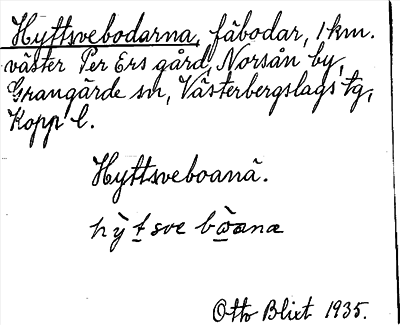 Hyttsvebodarna, fäbodar, 1 km.
väster Per Ers gård, Norsån by,
Grangärde sn, Västerbergslags tg,
Kopp l.
Hyttsveboanä.
hỳt sve bòana
Otto Blixt 1935.